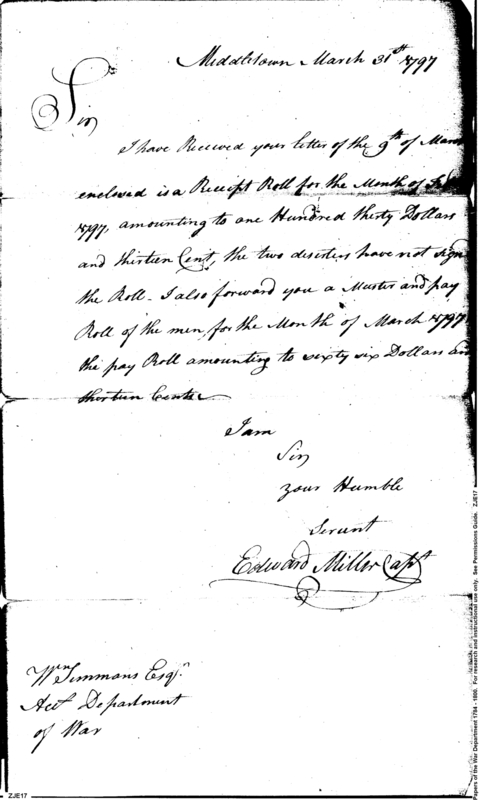 Middletown March 31st 1797
Sir
I have Received your letter of the 9th of March
enclosed is a Receipt Roll for the Month of Feb
1797, amounting to one Hundred thirty Dollars
and thirteen Cent, the two deserters have not sign
the Roll - I also forward you a Muster and pay
Roll of the men for the Month of March 1797
the pay Roll amounting to sixty six Dollars and
thirteen Cents
I am
Sir
your Humble
Servent
Edward Miller Capt
Wm Simmons Esqr.
Acct Department
of War
ZJE17
Papers of the War Department 1784 - 1800. For research and instructional use only. See Permissions Guide. ZJE17